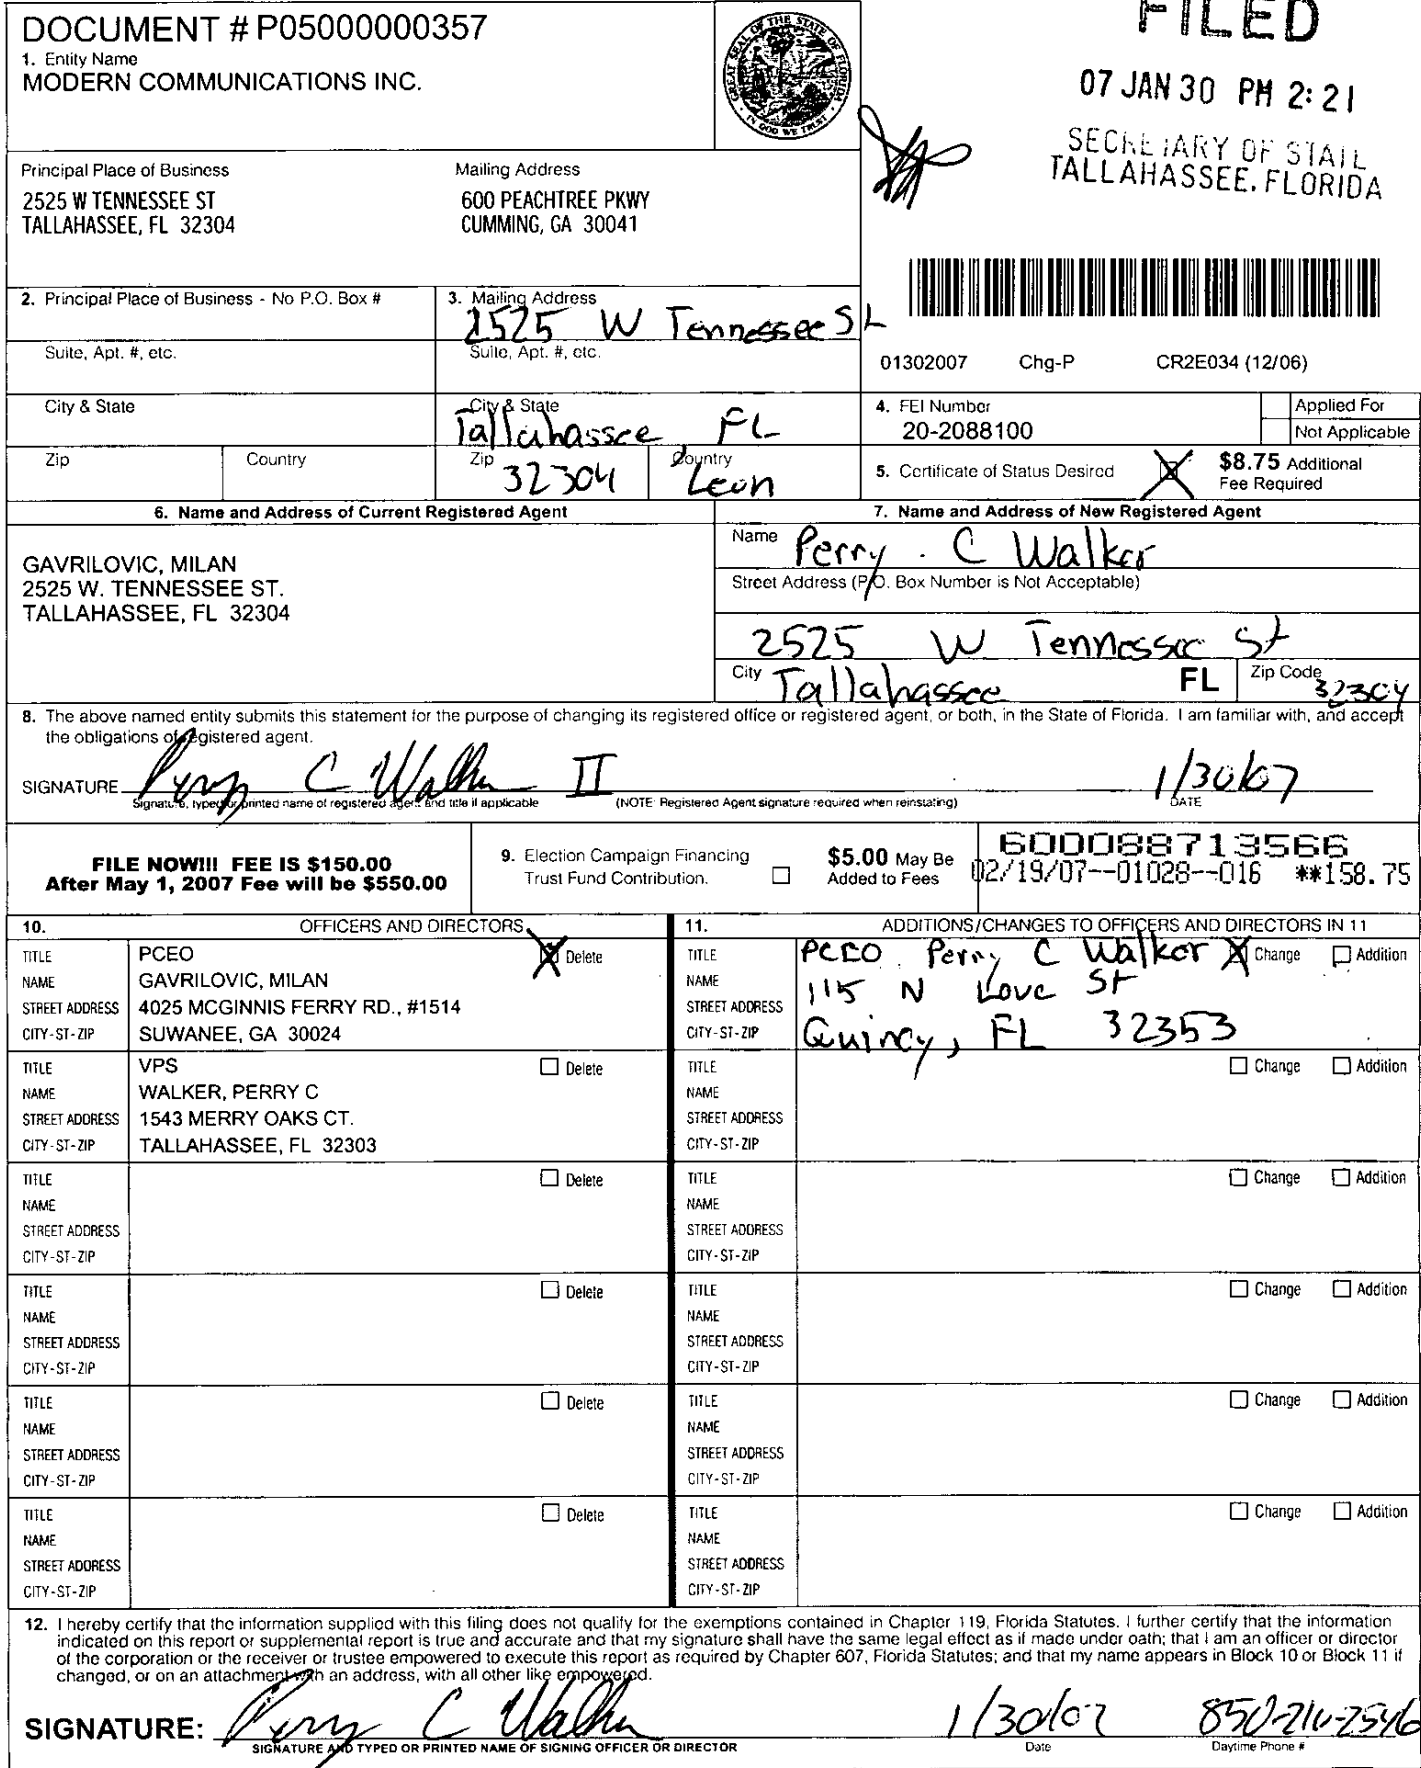 DOCUMENT # P05000000357
1. Entity Name
MODERN COMMUNICATIONS INC.
GREAT SEAL OF THE STATE OF FLORIDA
IN GOD WE TRUST
FILED
07 JAN 30 PM 2:21
SECRETARY OF STATE
TALLAHASSEE, FLORIDA
Principal Place of Business
2525 W TENNESSEE ST
TALLAHASSEE, FL 32304
Mailing Address
600 PEACHTREE PKWY
CUMMING, GA 30041
2. Principal Place of Business - No P.O. Box #
3. Mailing Address
2525 W Tennessee St
Suite, Apt. #, etc.
Suite, Apt. #, etc.
01302007 Chg-P CR2E034 (12/06)
City & State
City & State
Tallahassee, FL
4. FEI Number
20-2088100
Applied For
Not Applicable
Zip
Country
Zip
32304
Country
Leon
5. Certificate of Status Desired
$8.75 Additional
Fee Required
6. Name and Address of Current Registered Agent
GAVRILOVIC, MILAN
2525 W. TENNESSEE ST.
TALLAHASSEE, FL 32304
7. Name and Address of New Registered Agent
Name Perry . C Walker
Street Address (P.O. Box Number is Not Acceptable)
2525 W Tennessee St
City Tallahassee FL Zip Code 32304
8. The above named entity submits this statement for the purpose of changing its registered office or registered agent, or both, in the State of Florida. I am familiar with, and accept
the obligations of registered agent.
SIGNATURE Perry C Walker II 1/30/07
Signature, typed or printed name of registered agent and title if applicable (NOTE: Registered Agent signature required when reinstating) DATE
FILE NOW!!! FEE IS $150.00
After May 1, 2007 Fee will be $550.00
9. Election Campaign Financing
Trust Fund Contribution.
$5.00 May Be
Added to Fees
600088713566
02/19/07--01028--016 **158.75
10. OFFICERS AND DIRECTORS
TITLE PCEO Delete
NAME GAVRILOVIC, MILAN
STREET ADDRESS 4025 MCGINNIS FERRY RD., #1514
CITY-ST-ZIP SUWANEE, GA 30024
TITLE VPS Delete
NAME WALKER, PERRY C
STREET ADDRESS 1543 MERRY OAKS CT.
CITY-ST-ZIP TALLAHASSEE, FL 32303
TITLE Delete
NAME
STREET ADDRESS
CITY-ST-ZIP
TITLE Delete
NAME
STREET ADDRESS
CITY-ST-ZIP
TITLE Delete
NAME
STREET ADDRESS
CITY-ST-ZIP
TITLE Delete
NAME
STREET ADDRESS
CITY-ST-ZIP
11. ADDITIONS/CHANGES TO OFFICERS AND DIRECTORS IN 11
TITLE PCEO Perry C Walker Change Addition
NAME 115 N Love St
STREET ADDRESS
CITY-ST-ZIP Quincy, FL 32353
TITLE Change Addition
NAME
STREET ADDRESS
CITY-ST-ZIP
TITLE Change Addition
NAME
STREET ADDRESS
CITY-ST-ZIP
TITLE Change Addition
NAME
STREET ADDRESS
CITY-ST-ZIP
TITLE Change Addition
NAME
STREET ADDRESS
CITY-ST-ZIP
TITLE Change Addition
NAME
STREET ADDRESS
CITY-ST-ZIP
12. I hereby certify that the information supplied with this filing does not qualify for the exemptions contained in Chapter 119, Florida Statutes. I further certify that the information
indicated on this report or supplemental report is true and accurate and that my signature shall have the same legal effect as if made under oath; that I am an officer or director
of the corporation or the receiver or trustee empowered to execute this report as required by Chapter 607, Florida Statutes; and that my name appears in Block 10 or Block 11 if
changed, or on an attachment with an address, with all other like empowered.
SIGNATURE: Perry C Walker 1/30/07 850-210-2546
SIGNATURE AND TYPED OR PRINTED NAME OF SIGNING OFFICER OR DIRECTOR Date Daytime Phone #